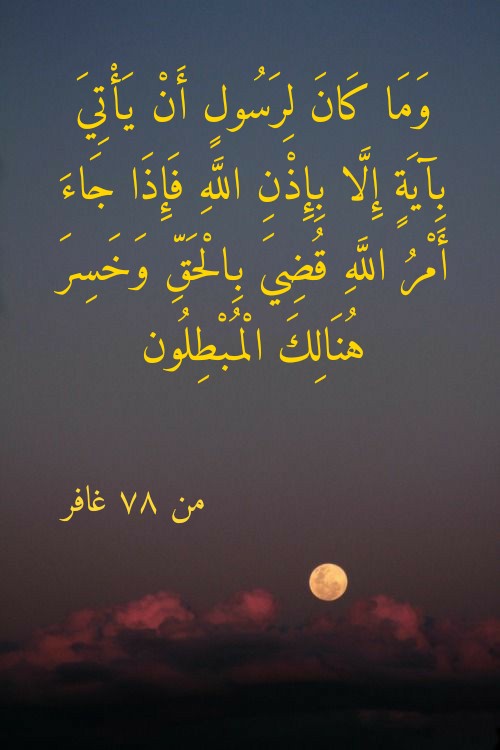 وَمَا كَانَ لِرَسُولٍ أَنْ يَأْتِيَ
بِآيَةٍ إِلَّا بِإِذْنِ اللَّهِ فَإِذَا جَاءَ
أَمْرُ اللَّهِ قُضِيَ بِالْحَقِّ وَخَسِرَ
هُنَالِكَ الْمُبْطِلُون
من ٧٨ غافر